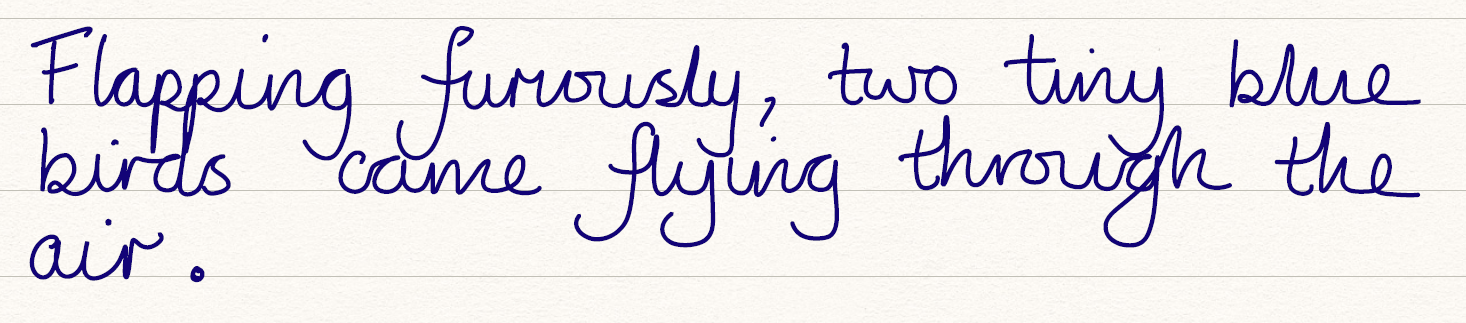 Flapping furiously, two tiny blue
birds came flying through the
air.